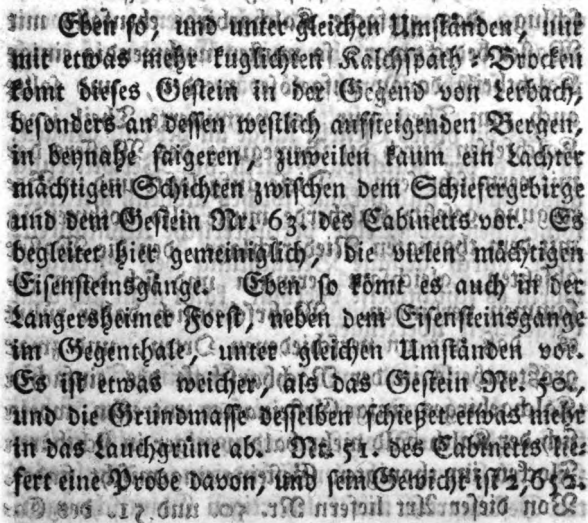 Eben ſo, und unter gleichen Umſtänden, nur
mit etwas mehr kuglichten Kalchſpath-Brocken
kömt dieſes Geſtein in der Gegend von Lerbach,
beſonders an deſſen weſtlich aufſteigenden Bergen,
in beynahe ſaigeren, zuweilen kaum ein Lachter
mächtigen Schichten zwiſchen dem Schiefergebirge
und dem Geſtein Nr. 63. des Cabinetts vor. Es
begleitet hier gemeiniglich, die vielen mächtigen
Eiſenſteinsgänge. Eben ſo kömt es auch in der
Langersheimer Forſt, neben dem Eiſenſteinsgange
im Gegenthale, unter gleichen Umſtänden vor.
Es iſt etwas weicher, als das Geſtein Nr. 50.
und die Grundmaſſe deſſelben ſchießet etwas mehr
in das Lauchgrüne ab. Nr. 51. des Cabinetts lie-
fert eine Probe davon, und ſein Gewicht iſt 2,652.